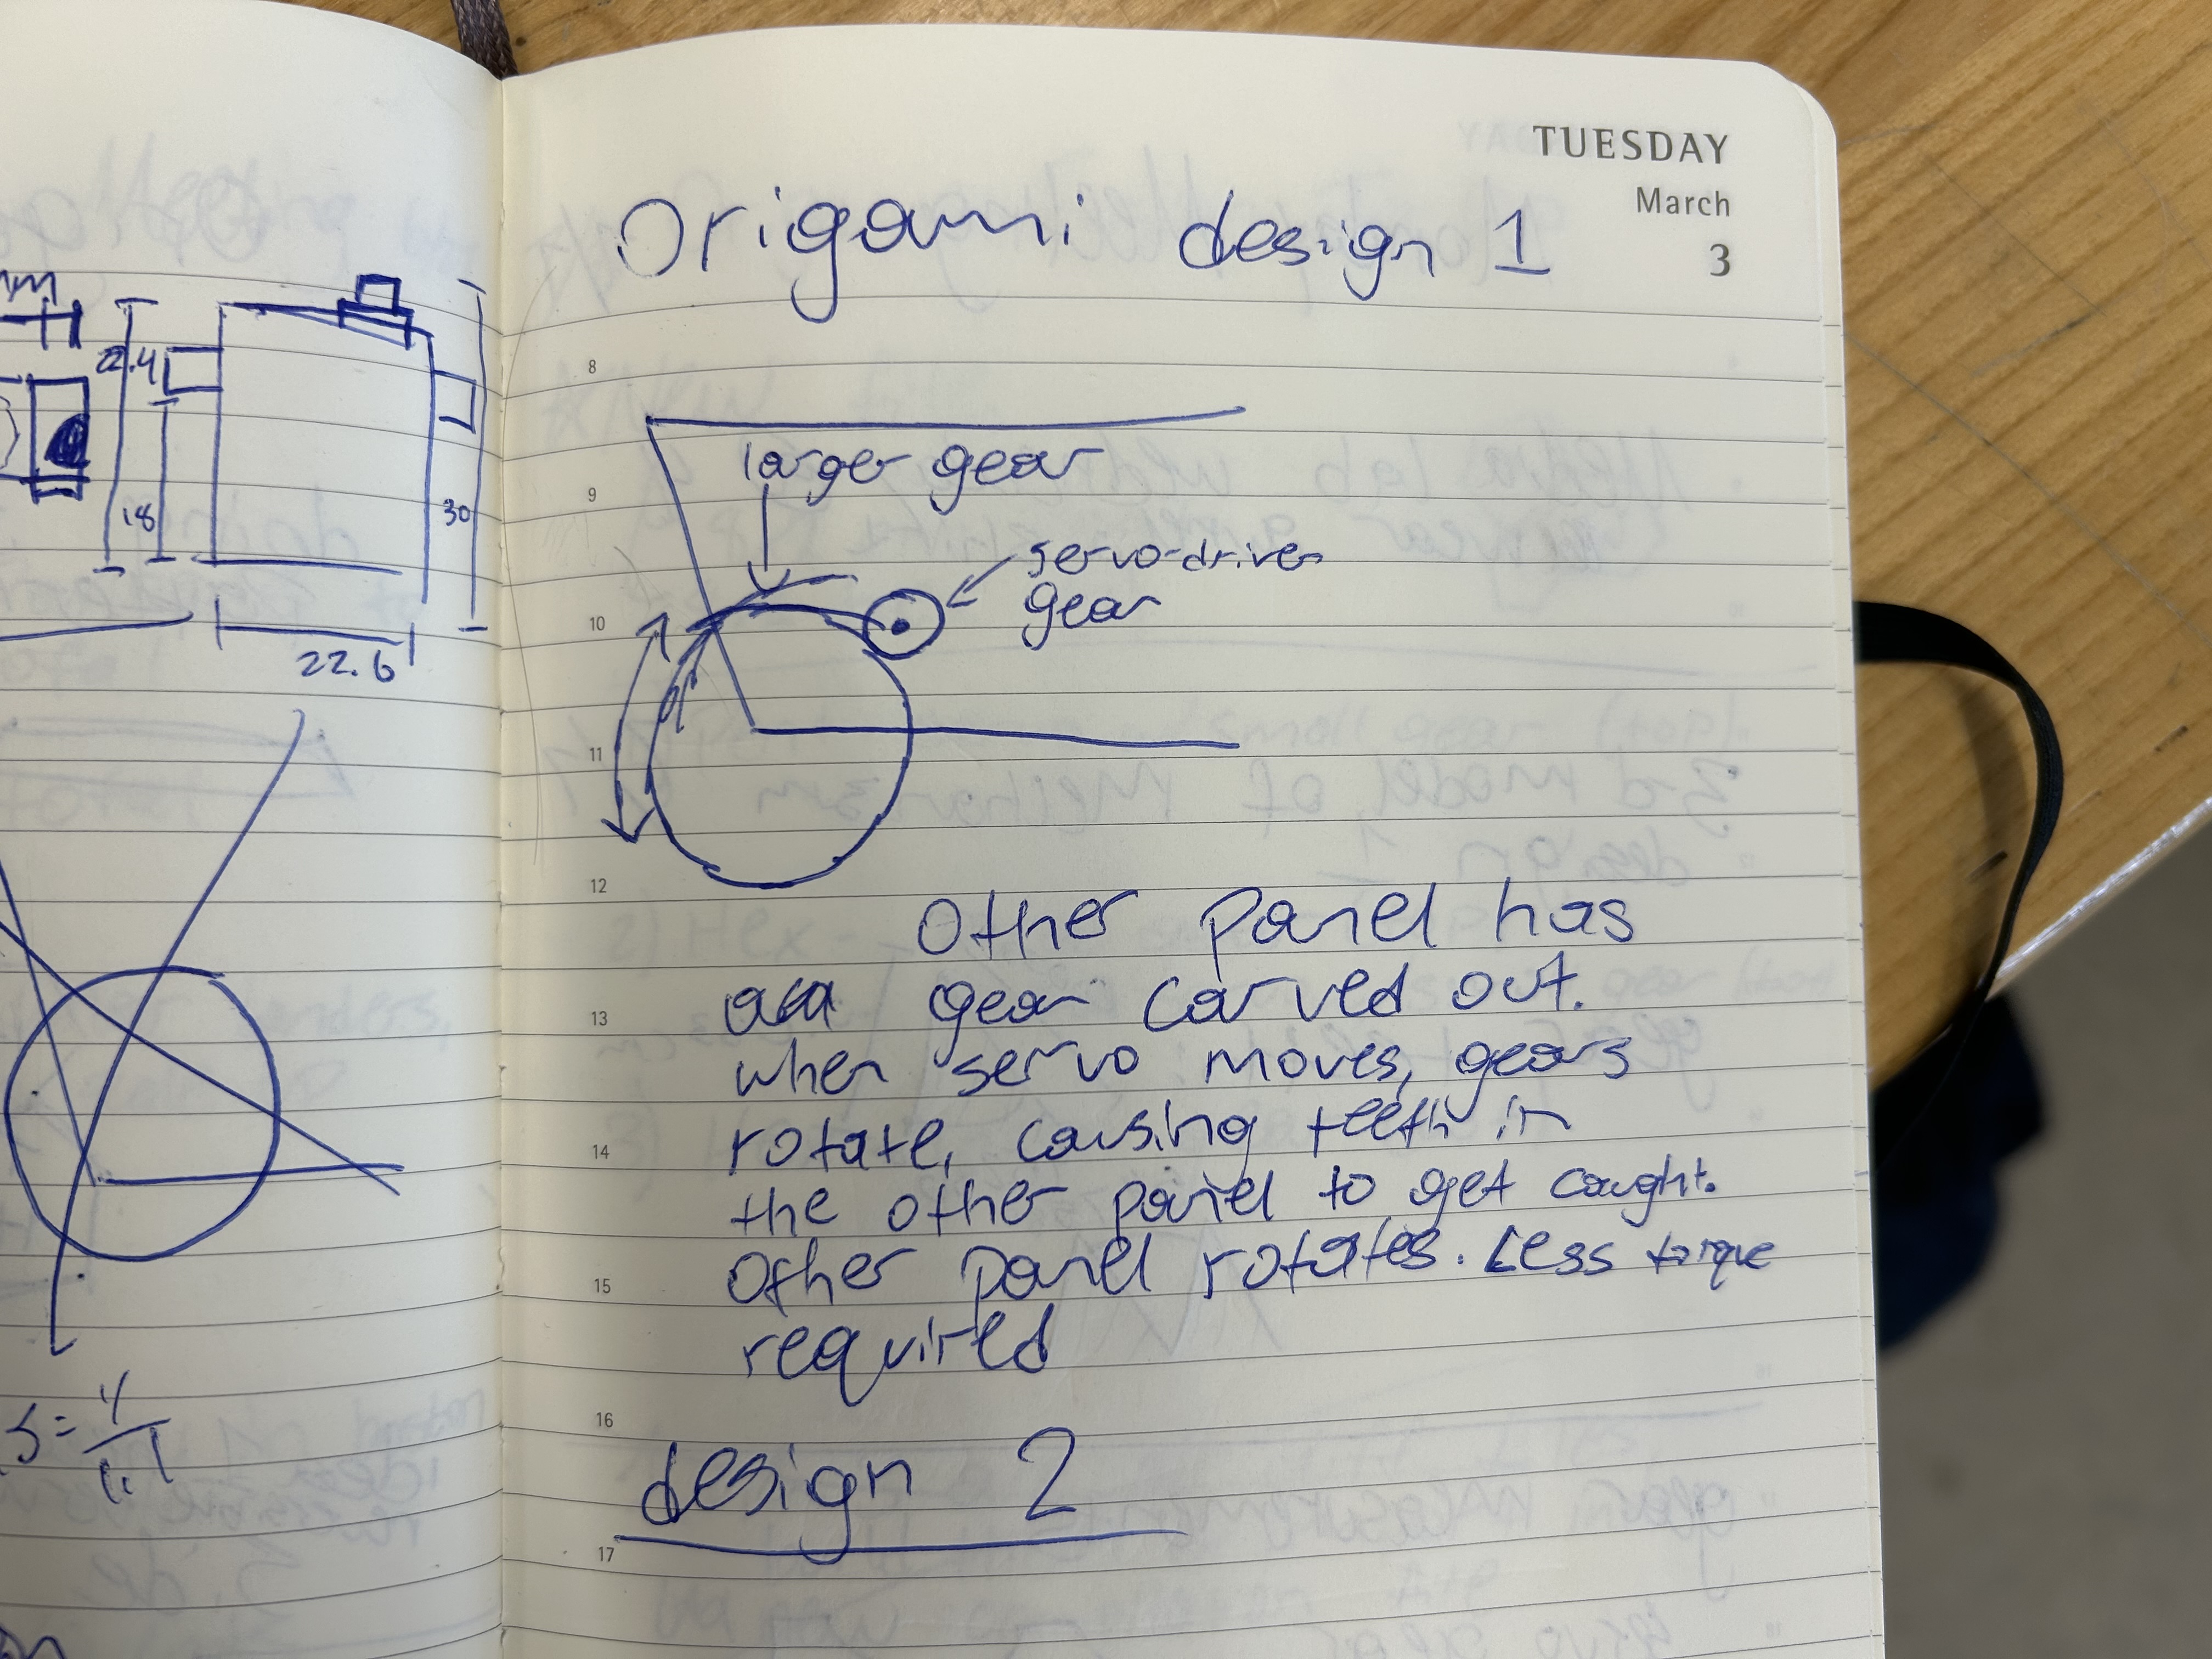 22.4
18
30
22.6
TUESDAY
March
3
Origami design 1
8
9
10
11
12
13
14
15
16
17
larger gear
servo-driver
gear
Other Panel has
gear carved out.
when servo moves, gears
rotate, causing teeth in
the other panel to get caught.
Other panel rotates. Less torque
required
design 2